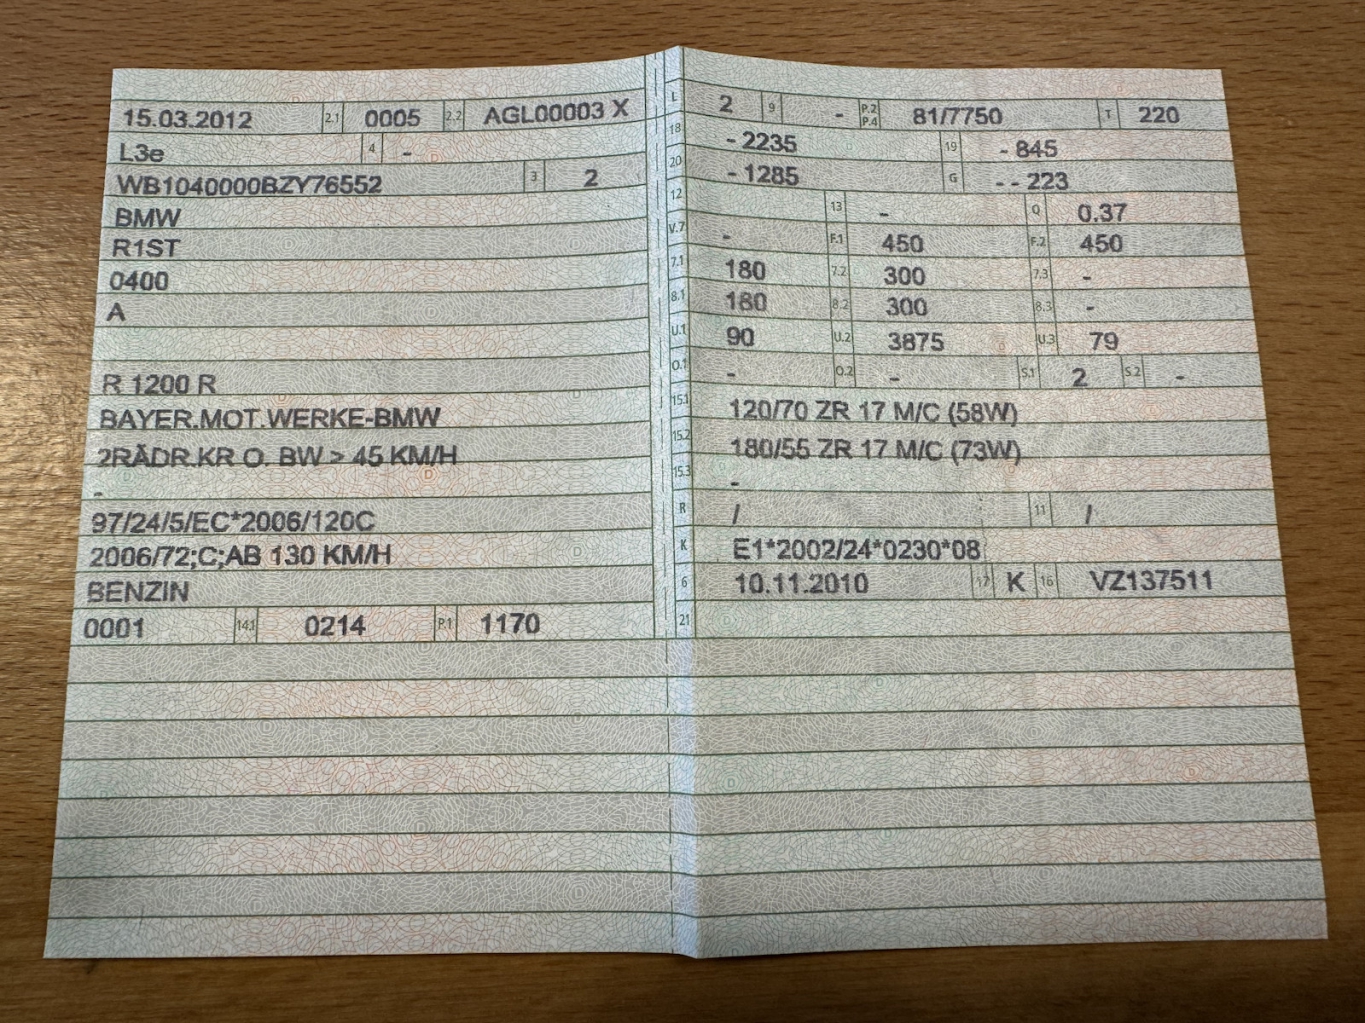 15.03.2012 2.1 0005 2.2 AGL00003 X
L3e 4 -
WB1040000BZY76552 3 2
BMW
R1ST
0400
A
R 1200 R
BAYER.MOT.WERKE-BMW
2RÄDR.KR O. BW > 45 KM/H
-
97/24/5/EC*2006/120C
2006/72;C;AB 130 KM/H
BENZIN
0001 14.1 0214 P.1 1170
L 2 9 - P.2 P.4 81/7750 T 220
18 - 2235 19 - 845
20 - 1285 G - - 223
12 13 - Q 0.37
V.7 - F.1 450 F.2 450
7.1 180 7.2 300 7.3 -
8.1 180 8.2 300 8.3 -
U.1 90 U.2 3875 U.3 79
O.1 - O.2 - S.1 2 S.2 -
15.1 120/70 ZR 17 M/C (58W)
15.2 180/55 ZR 17 M/C (73W)
15.3 -
R / 11 /
K E1*2002/24*0230*08
6 10.11.2010 17 K 16 VZ137511
21